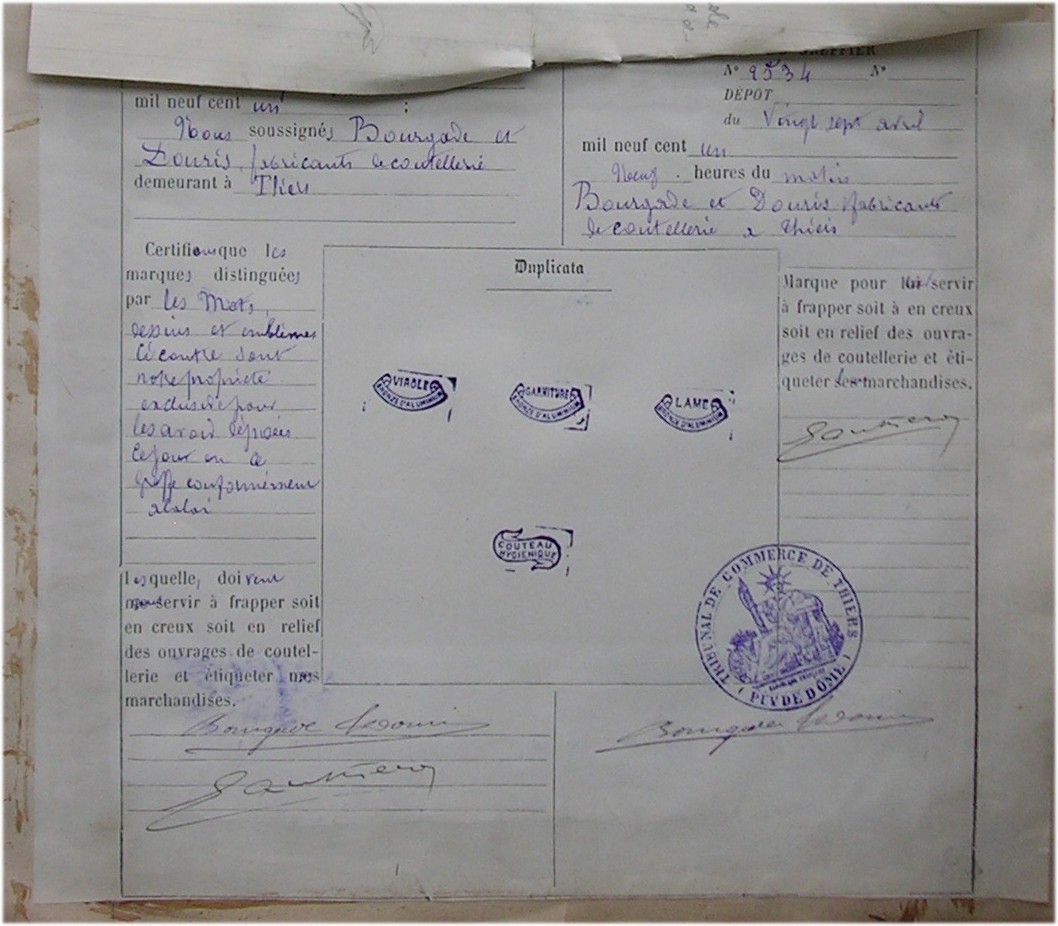 mil neuf cent un ;
Nous soussignés Bourgade et
Douris, fabricants de coutellerie
demeurant à Thiers
GREFFIER
N° 2534 N°
DÉPOT
du Vingt sept avril
mil neuf cent un
Neuf - heures du matin
Bourgade et Douris fabricants
de coutellerie a Thiers
Certifions que les
marques distinguées
par les Mots,
dessins et emblèmes
ci contre sont
notre propriété
exclusive pour
les avoir déposés
ce jour en ce
greffe conformément
a la loi
Lesquelles doivent
servir à frapper soit
en creux soit en relief
des ouvrages de coutel-
lerie et étiqueter nos
marchandises.
Duplicata
VIROLE
BRONZE D'ALUMINIUM
GARNITURE
BRONZE D'ALUMINIUM
LAME
BRONZE D'ALUMINIUM
COUTEAU
HYGIENIQUE
Marque pour servir
à frapper soit à en creux
soit en relief des ouvra-
ges de coutellerie et éti-
queter les marchandises.
TRIBUNAL DE COMMERCE DE THIERS
(PUY DE DÔME)
REPUBLIQUE FRANÇAISE
Bourgade &
Bourgade &